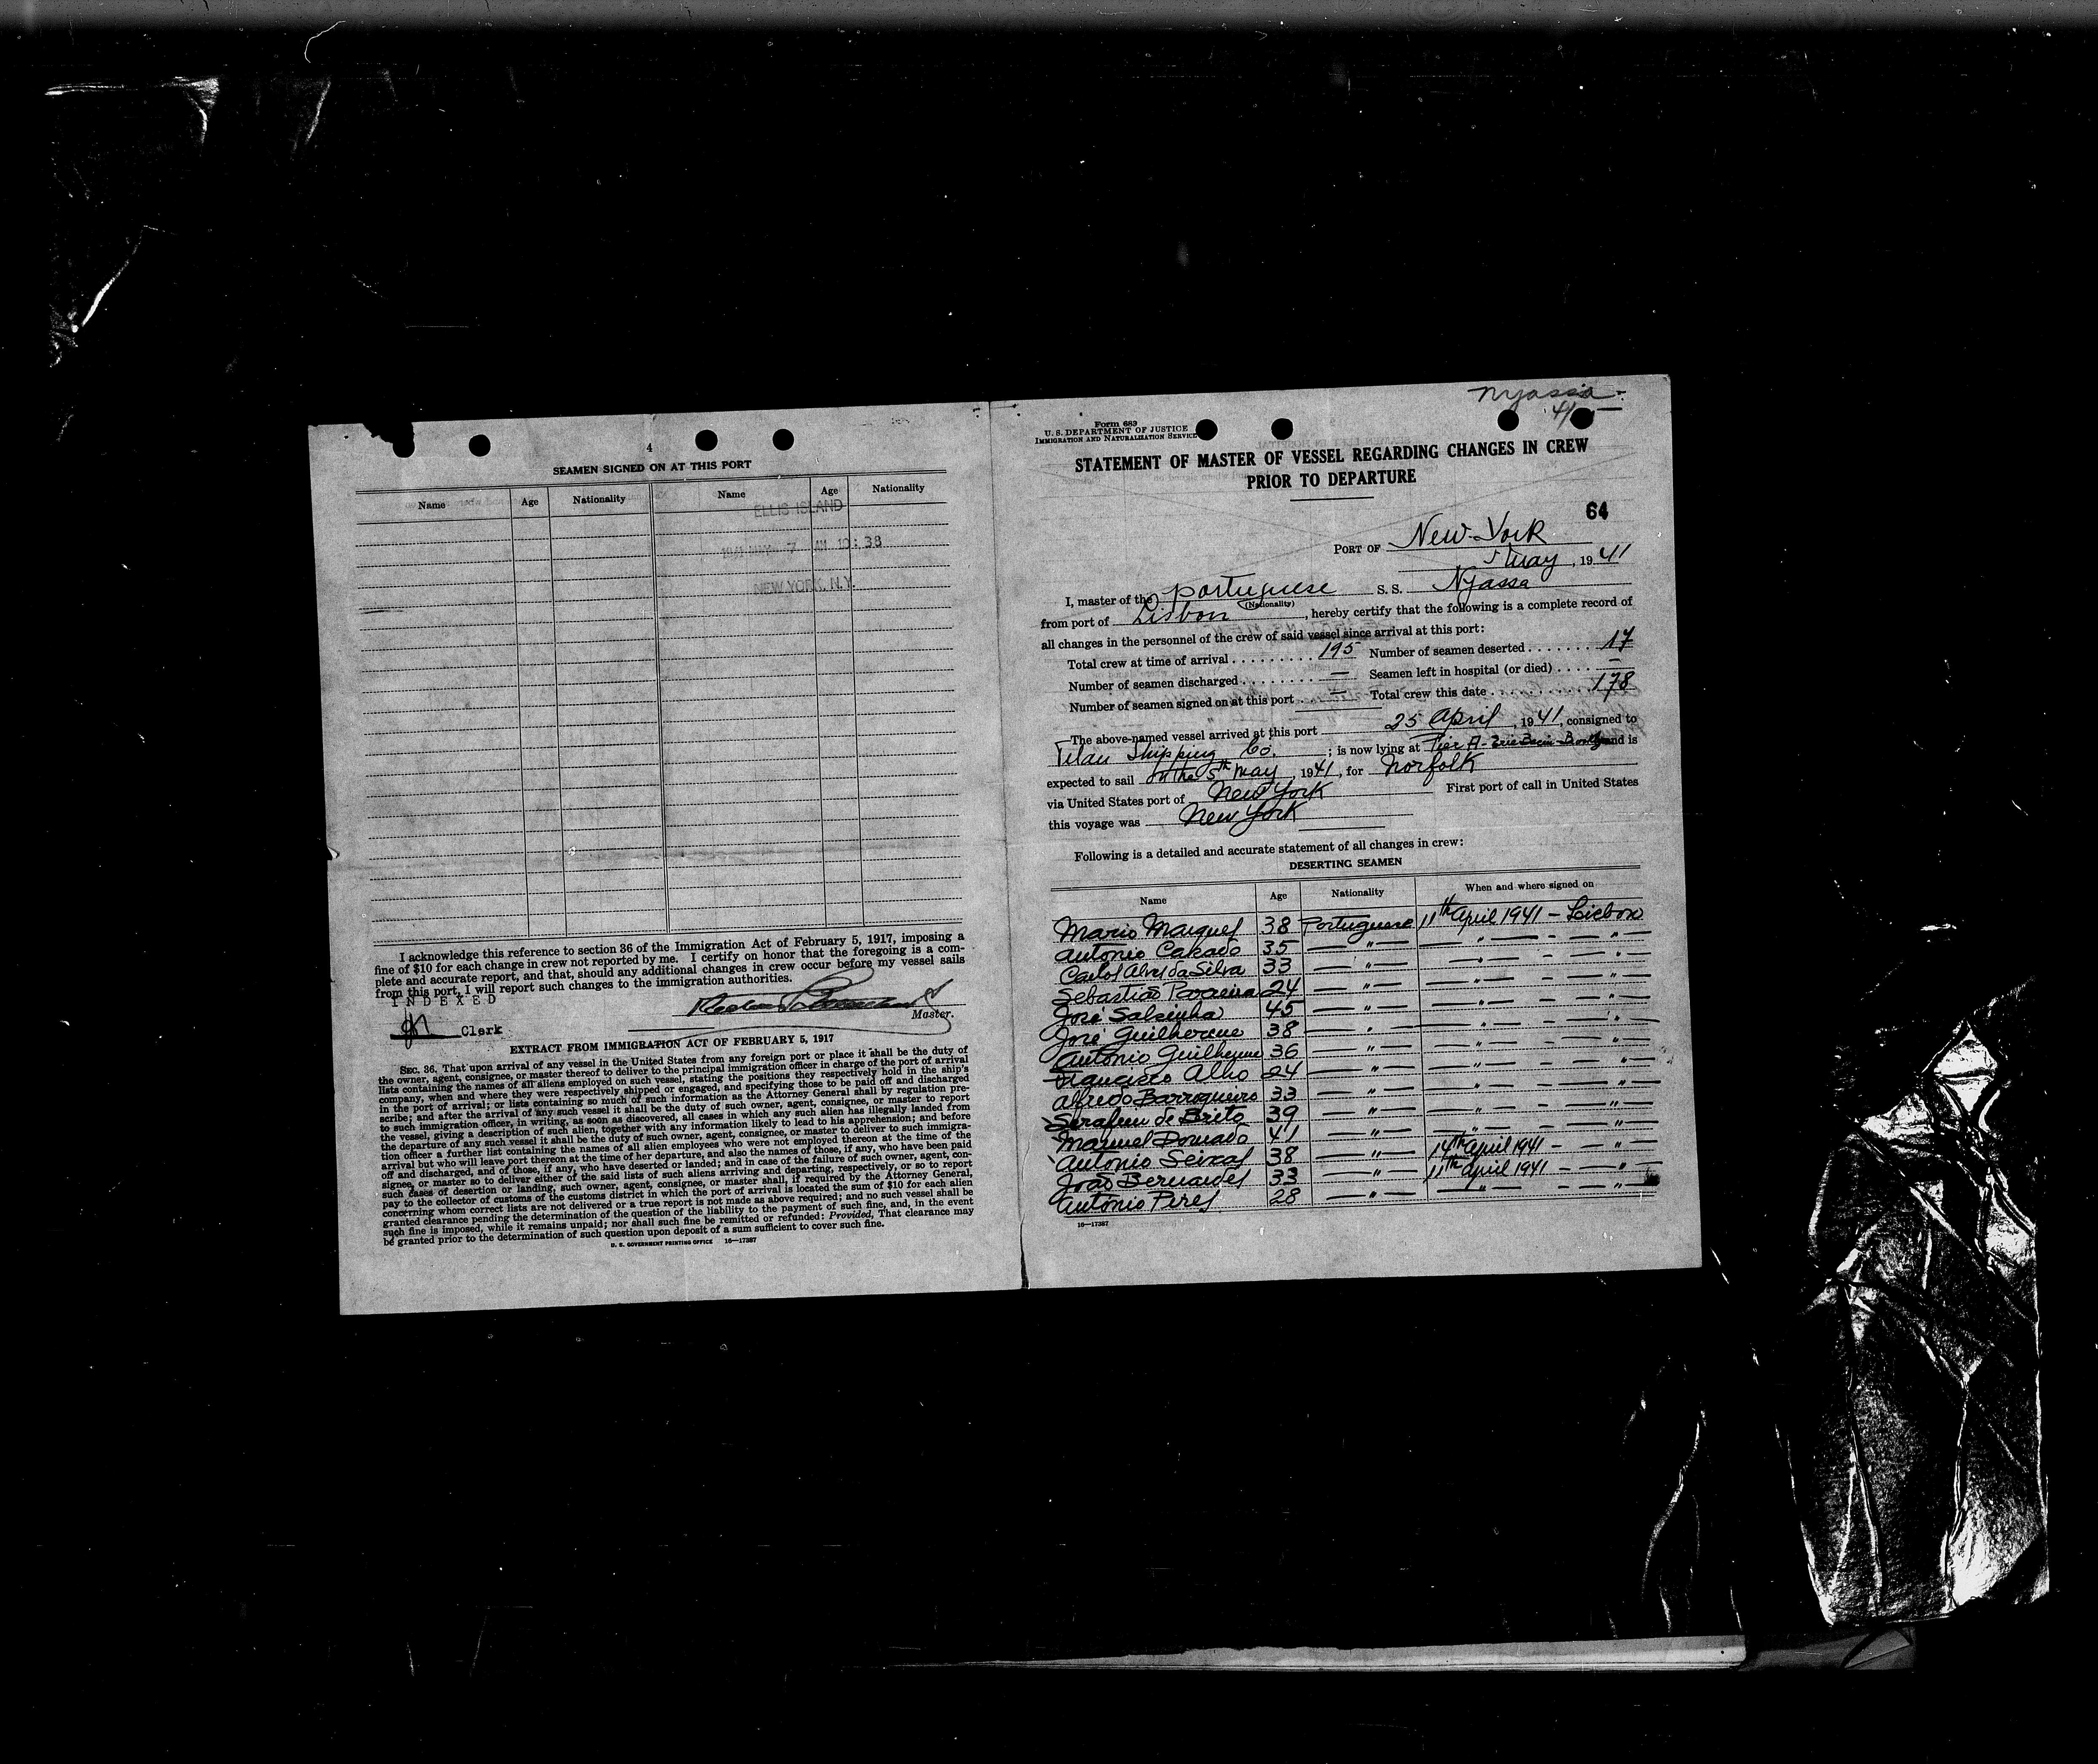 4
SEAMEN SIGNED ON AT THIS PORT
Name Age Nationality Name Age Nationality
ELLIS ISLAND
1941 MAY 7 AM 10:38
NEW YORK, N.Y.
I acknowledge this reference to section 36 of the Immigration Act of February 5, 1917, imposing a
fine of $10 for each change in crew not reported by me. I certify on honor that the foregoing is a com-
plete and accurate report, and that, should any additional changes in crew occur before my vessel sails
from this port, I will report such changes to the immigration authorities.
INDEXED
Master.
Clerk
EXTRACT FROM IMMIGRATION ACT OF FEBRUARY 5, 1917
SEC. 36. That upon arrival of any vessel in the United States from any foreign port or place it shall be the duty of
the owner, agent, consignee, or master thereof to deliver to the principal immigration officer in charge of the port of arrival
lists containing the names of all aliens employed on such vessel, stating the positions they respectively hold in the ship's
company, when and where they were respectively shipped or engaged, and specifying those to be paid off and discharged
in the port of arrival; or lists containing so much of such information as the Attorney General shall by regulation pre-
scribe; and after the arrival of any such vessel it shall be the duty of such owner, agent, consignee, or master to report
to such immigration officer, in writing, as soon as discovered, all cases in which any such alien has illegally landed from
the vessel, giving a description of such alien, together with any information likely to lead to his apprehension; and before
the departure of any such vessel it shall be the duty of such owner, agent, consignee, or master to deliver to such immigra-
tion officer a further list containing the names of all alien employees who were not employed thereon at the time of the
arrival but who will leave port thereon at the time of her departure, and also the names of those, if any, who have been paid
off and discharged, and of those, if any, who have deserted or landed; and in case of the failure of such owner, agent, con-
signee, or master so to deliver either of the said lists of such aliens arriving and departing, respectively, or so to report
such cases of desertion or landing, such owner, agent, consignee, or master shall, if required by the Attorney General,
pay to the collector of customs of the customs district in which the port of arrival is located the sum of $10 for each alien
concerning whom correct lists are not delivered or a true report is not made as above required; and no such vessel shall be
granted clearance pending the determination of the question of the liability to the payment of such fine, and, in the event
such fine is imposed, while it remains unpaid; nor shall such fine be remitted or refunded: Provided, That clearance may
be granted prior to the determination of such question upon deposit of a sum sufficient to cover such fine.
U. S. GOVERNMENT PRINTING OFFICE 16—17387
Nyassa
Form 689
U. S. DEPARTMENT OF JUSTICE
IMMIGRATION AND NATURALIZATION SERVICE
STATEMENT OF MASTER OF VESSEL REGARDING CHANGES IN CREW
PRIOR TO DEPARTURE
64
PORT OF New-York
5 May, 1941
I, master of the portuguese S. S. Nyassa
(Nationality)
from port of Lisbon, hereby certify that the following is a complete record of
all changes in the personnel of the crew of said vessel since arrival at this port:
Total crew at time of arrival 195 Number of seamen deserted 17
Number of seamen discharged — Seamen left in hospital (or died) —
Number of seamen signed on at this port — Total crew this date 178
The above-named vessel arrived at this port 25 April, 1941, consigned to
Shipping Co.; is now lying at Pier A - Erie Basin - and is
expected to sail on the 5th May, 1941, for Norfolk
via United States port of New York First port of call in United States
this voyage was New York
Following is a detailed and accurate statement of all changes in crew:
DESERTING SEAMEN
Name Age Nationality When and where signed on
Mario Marques 38 Portuguese 11th April 1941 - Lisbon
Antonio Calado 35 — " — — " — - — " —
Carlos Alves da Silva 33 — " — — " — - — " —
Sebastião 24 — " — — " — - — " —
José Salsinha 45 — " — — " — - — " —
José Guilherme 38 — " — — " — - — " —
Antonio Guilherme 36 — " — — " — - — " —
Francisco Alho 24 — " — — " — - — " —
Alfredo Barroqueiro 33 — " — — " — - — " —
Serafim de Brito 39 — " — — " — - — " —
Manuel Dourado 41 — " — — " — - — " —
Antonio Seixas 38 — " — 14th April 1941 - — " —
João Bernardes 33 — " — 11th April 1941 - — " —
Antonio Peres 28 — " — — " — - — " —
16—17387